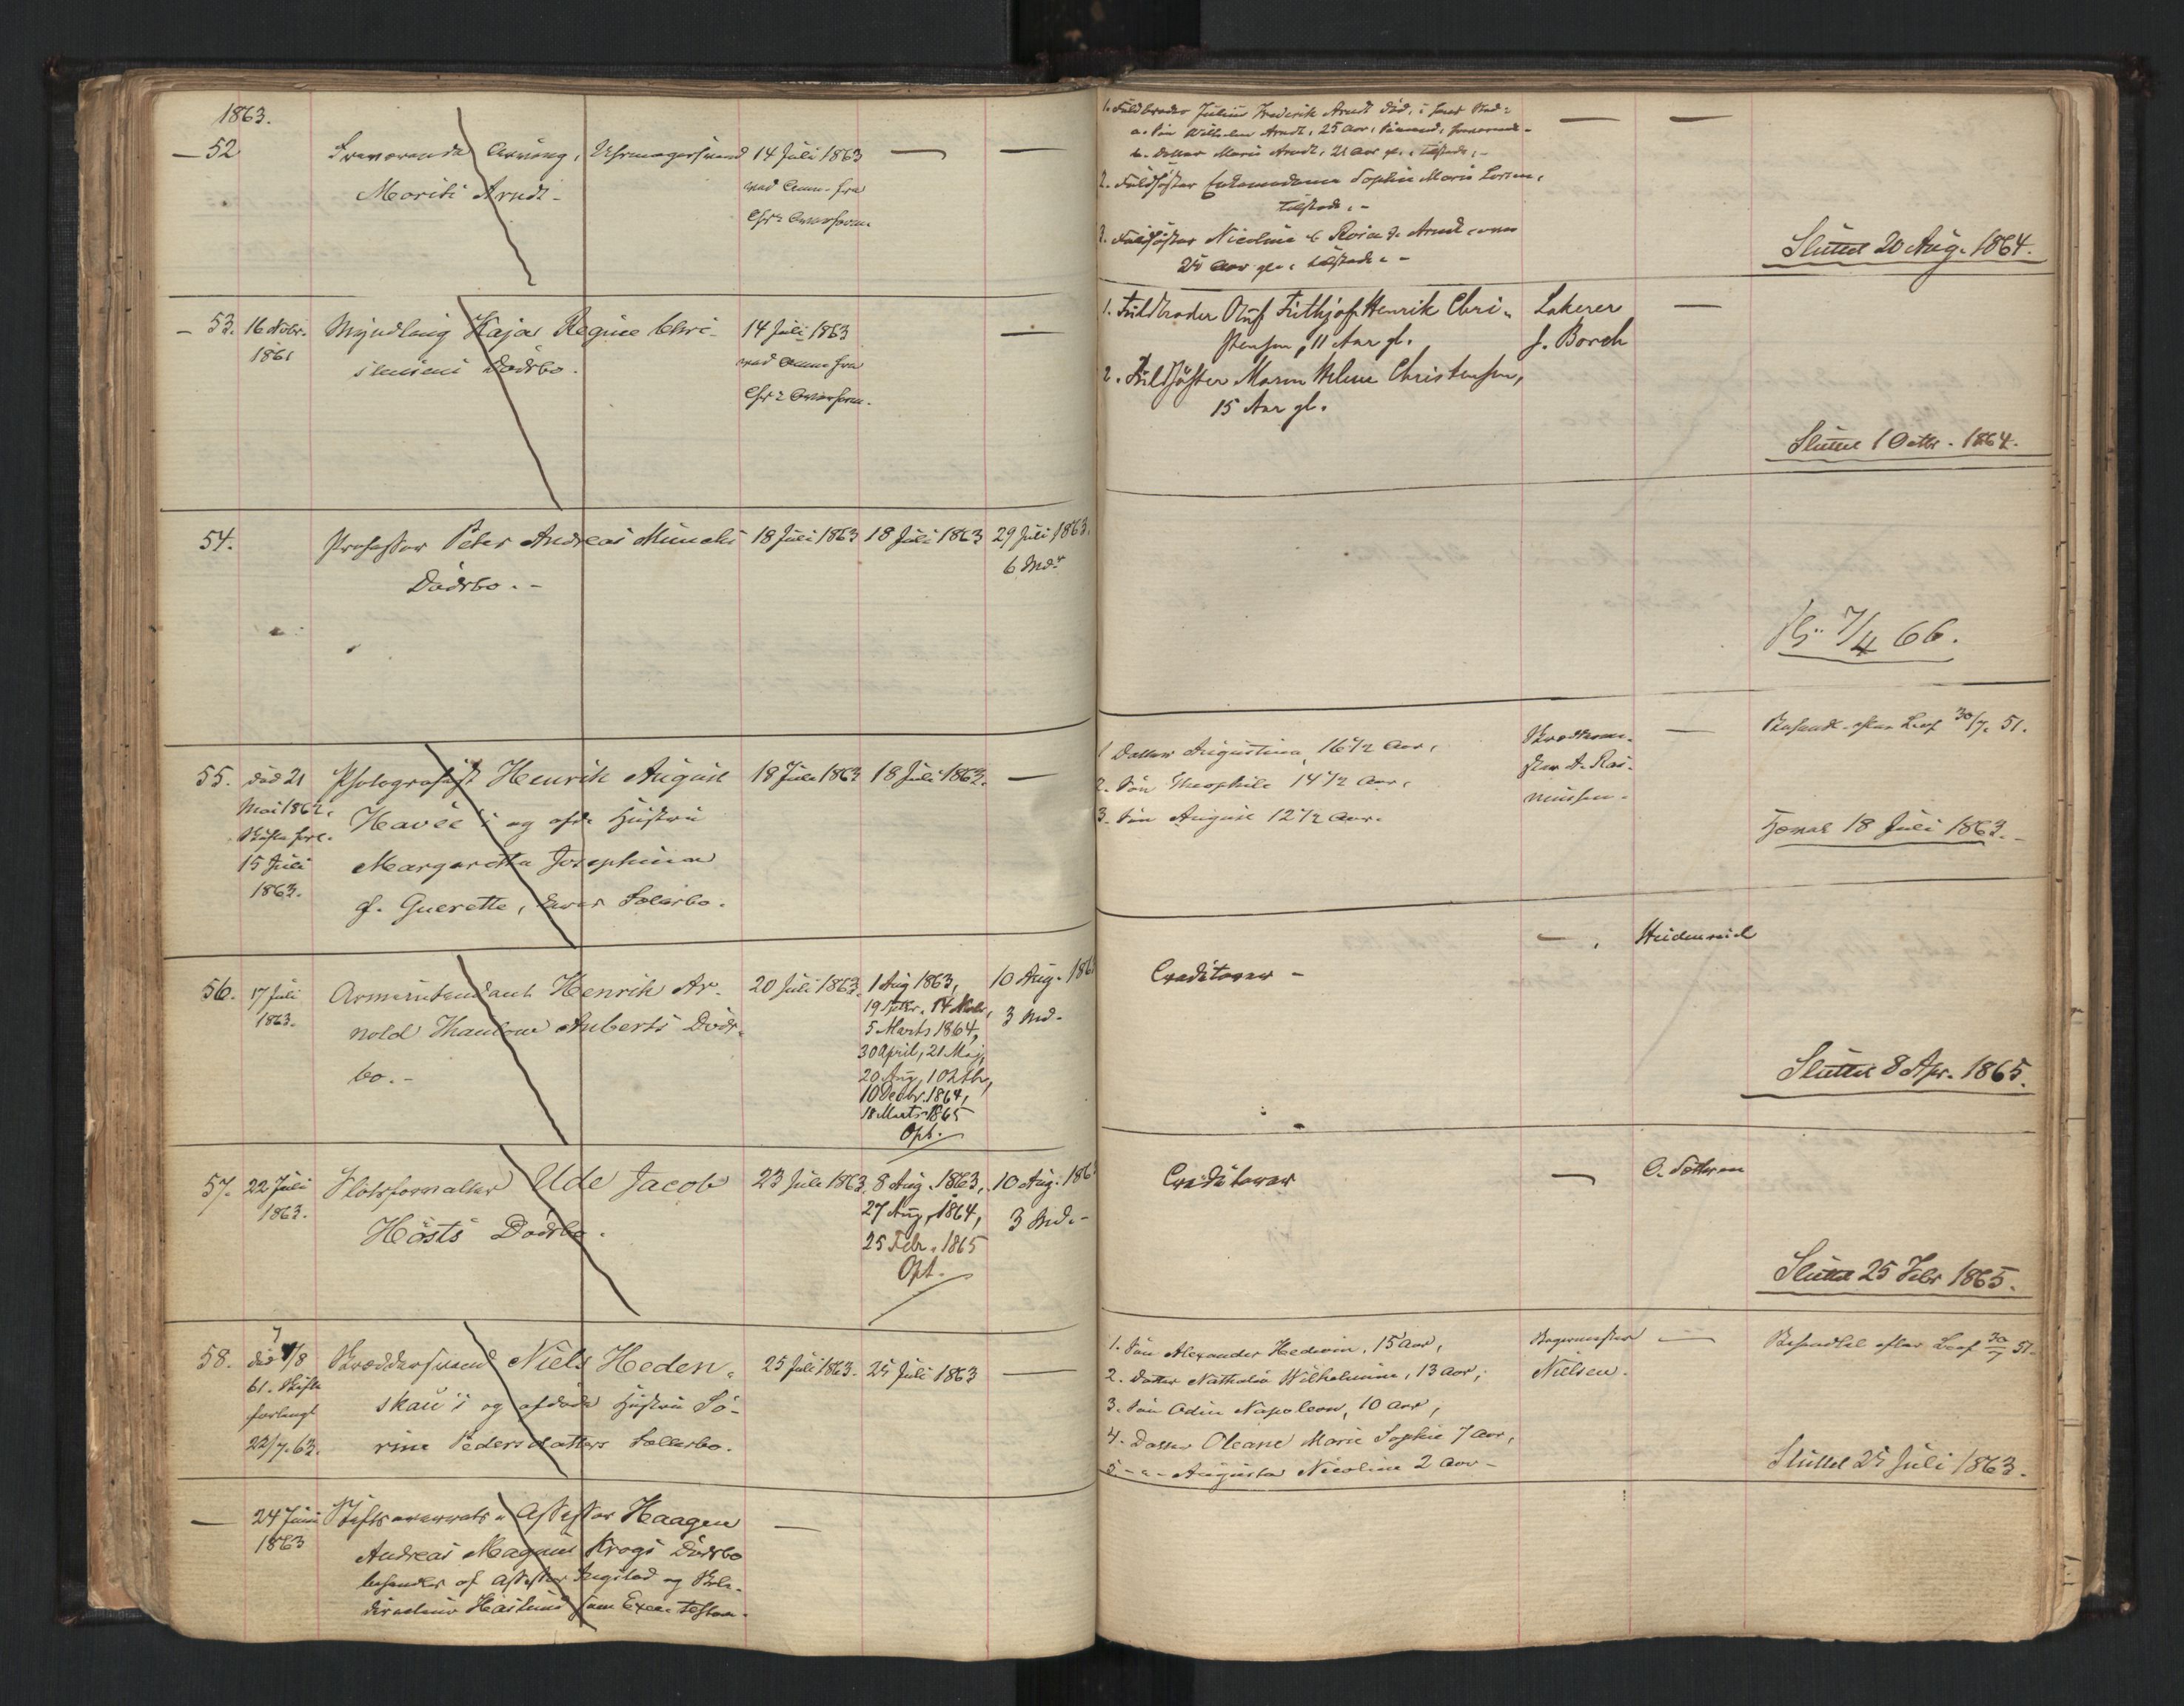 1863.
52 Fraværende Arving, Uhrmagersvend 14 Juli 1863
Moritz Arndt - 
1. Fuldbroder Julius Frederik Arndt død,
a. Søn Wilhelm Arndt, 25 Aar, Sømand, fraværende -
b. Datter Marie Arndt, 21 Aar gl., tilstede, -
2. Fuldsøster Enkemadame Sophie Marie
tilstede. -
3. Fuldsøster Nicoline Arndt
25 Aar gl., tilstede. -
Sluttet 20 Aug. 1864.
53. 16 Novbr. 1861 Myndling Kaja Regine Chri-
stensens Dødsbo.
14 Juli 1863
1. Fuldbroder Oluf Frithjof Henrik Chri-
stensen, 11 Aar gl.
2. Fuldsøster Maren Helene Christensen,
15 Aar gl.
Lakerer
J. Borch
Sluttet 1 Octbr. 1864.
54. Professor Peter Andreas Munchs 18 Juli 1863 18 Juli 1863 29 Juli 1863.
Dødsbo. - 6 Mdr
7/4 66.
55. død 21
Mai 1862.
Skifte forl.
15 Juli
1863.
Photografist Henrik August
Havée's og afd. Hustru
Margaretha Josephine
f. Guerette, Fælesbo.
18 Juli 1863 18 Juli 1863. -
1 Datter Augustina, 16 1/2 Aar,
2. Søn Theophile 14 1/2 Aar,
3. Søn August 12 1/2 Aar.
A. Ras-
mussen.
Behandl. efter Lov 30/7. 51.
Hævet 18 Juli 1863. -
56. 17 Juli
1863.
Armeintendant Henrik Ar-
nold Thaulow Auberts Døds-
bo. -
20 Juli 1863.
1 Aug 1863,
19 Septbr., 14 Novbr,
5 Marts 1864,
30 April, 21 Maj,
20 Aug, 1 Octbr,
10 Decbr. 1864,
18 Marts 1865
Opt.
10 Aug. 186
3 Md.
Creditorer -
Heidenreich
Sluttet 8 Apr. 1865.
57. 22 Juli
1863.
Slotsforvalter Ude Jacob
Høsts Dødsbo.
23 Juli 1863.
8 Aug. 1863,
27 Aug, 1864,
25 Febr. 1865
Opt.
10 Aug. 186
3 Md. -
Creditorer
Sluttet 25 Febr 1865.
58. død 7/8
61. Skifte
forlangt
22/7. 63.
Skræddersvend Niels Heden-
skau's og afdøde Hustru Sø-
rine Pedersdatters Fællesbo.
25 Juli 1863. 25 Juli 1863 -
1. Søn Alexander Hedevin, 15 Aar,
2. Datter Nathalia Wilhelmine, 13 Aar;
3. Søn Odin Napoleon, 10 Aar,
4. Datter Oleane Marie Sophie 7 Aar,
5 - " - Augusta Nicoline 2 Aar -
Bagermester
Nielsen.
Behandlet efter Lov 30/7 51.
Sluttet 25 Juli 1863.
24 Juni
1863
Stiftsoverrets-Assessor Haagen
Andreas Magnus Krogs Dødsbo
behandles af Assessor Ingstad og
som Exec. Testam.